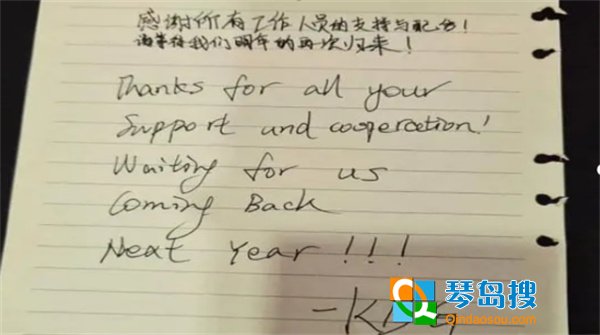 感谢所有工作人员的支持与配合!
请等待我们明年的再次归来!
Thanks for all your
Support and cooperation!
Waiting for us
Coming Back
Next Year !!!
琴岛搜
Qindaosou.com